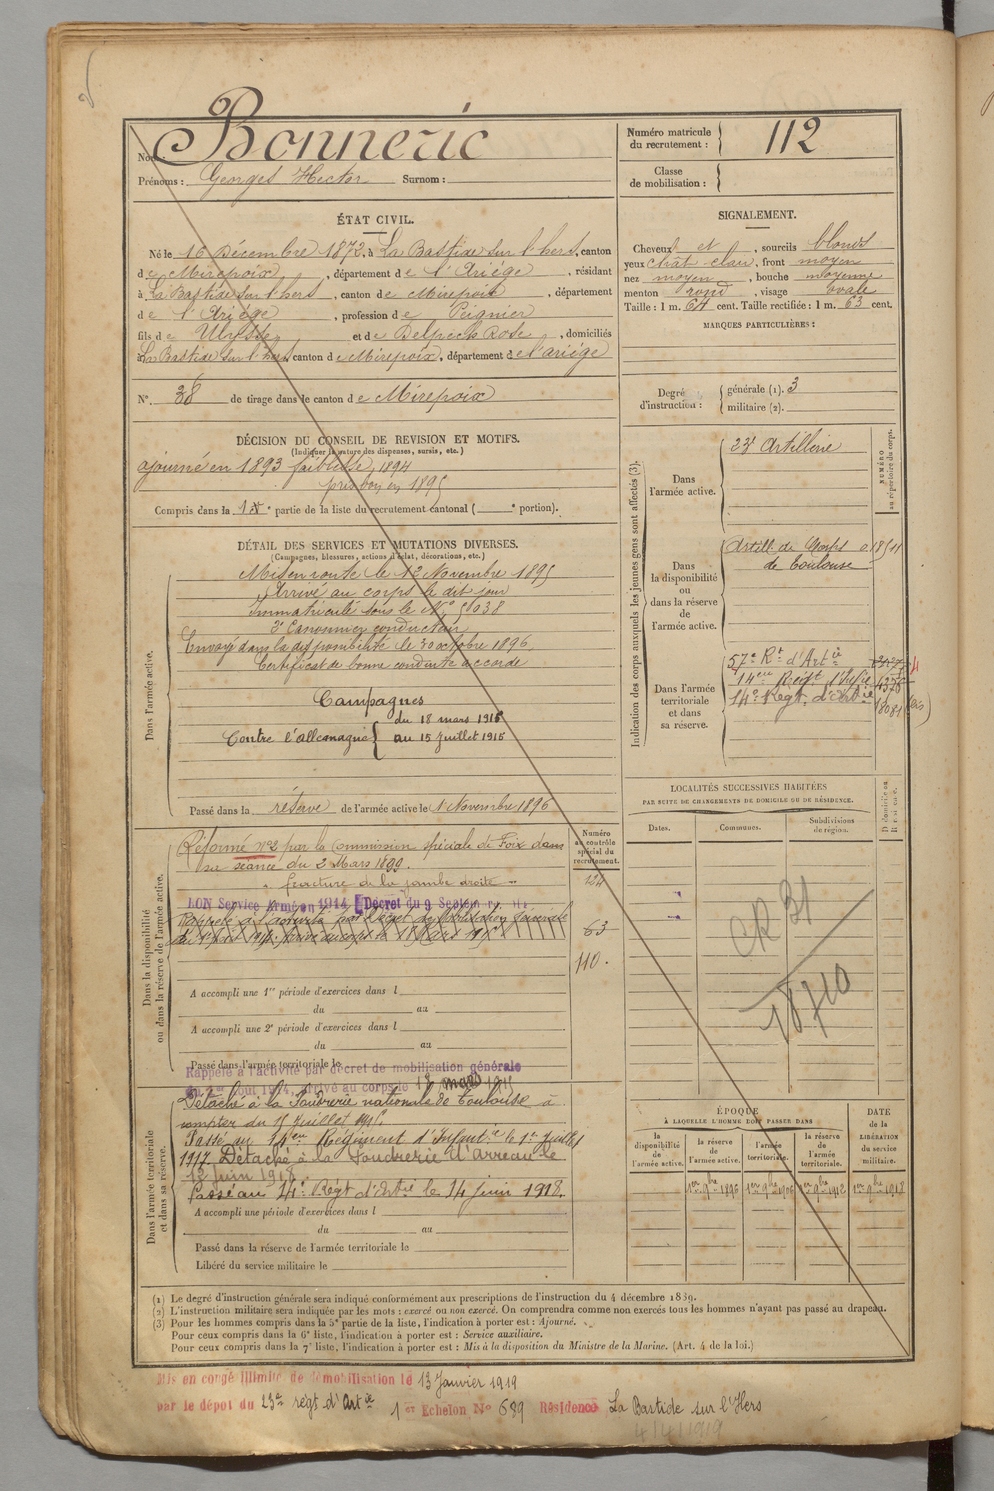 Nom : Bonneric
Prénoms : Georges Hector Surnom :
Numéro matricule du recrutement : 112
Classe de mobilisation :
ÉTAT CIVIL.
Né le 16 Décembre 1872, à La Bastide sur l'hers, canton
de Mirepoix, département de l'Ariége, résidant
à La Bastide sur l'hers, canton de Mirepoix, département
de l'Ariége, profession de Peignier
fils de Ulysse et de Belpech Rose, domiciliés
à La Bastide sur l'hers canton de Mirepoix, département de l'ariége
N° 38 de tirage dans le canton de Mirepoix
SIGNALEMENT.
Cheveux et , sourcils blonds
yeux chât-clair, front moyen
nez moyen, bouche moyenne
menton rond, visage ovale
Taille : 1 m. 64 cent. Taille rectifiée : 1 m. 63 cent.
MARQUES PARTICULIÈRES :
Degré d'instruction : générale (1). 3
militaire (2).
DÉCISION DU CONSEIL DE REVISION ET MOTIFS.
(Indiquer la nature des dispenses, sursis, etc.)
ajourné en 1893 faiblesse, 1894
pris bon en 1895
Compris dans la 1re partie de la liste du recrutement cantonal ( e portion).
DÉTAIL DES SERVICES ET MUTATIONS DIVERSES.
(Campagnes, blessures, actions d'éclat, décorations, etc.)
Dans l'armée active.
Mis en route le 12 Novembre 1895
Arrivé au corps le dit jour
Immatriculé sous le N° 5038
2e Canonnier conducteur
Envoyé dans la disponibilité le 30 octobre 1896
Certificat de bonne conduite accordé
Campagnes
Contre l'allemagne du 18 mars 1915
au 15 juillet 1915
Passé dans la réserve de l'armée active le 1 Novembre 1896
Indication des corps auxquels les jeunes gens sont affectés (3).
NUMÉRO au répertoire du corps.
Dans l'armée active.
23e Artillerie
Dans la disponibilité ou dans la réserve de l'armée active.
Artill. de Corps
de Toulouse
Dans l'armée territoriale et dans sa réserve.
57e Rt d'Artie
14eme Régt d'Infie 4376
14e Régt d'Artie 18081 (bis)
LOCALITÉS SUCCESSIVES HABITÉES
PAR SUITE DE CHANGEMENTS DE DOMICILE OU DE RÉSIDENCE.
Dates. Communes. Subdivisions de région.
CR 31
18710
Dans la disponibilité ou dans la réserve de l'armée active.
Numéro au contrôle spécial du recrutement.
Réformé n°2 par la Commission spéciale de Foix dans
sa séance du 2 Mars 1899.
" fracture de la jambe droite "
134
BON Service Armé en 1914 [Décret du 9 Septembre 1914
Rappelé à l'activité par Décret de Mobilisation Générale
63
110.
A accompli une 1re période d'exercices dans l
du au
A accompli une 2e période d'exercices dans l
du au
Passé dans l'armée territoriale le
Rappelé à l'activité par décret de mobilisation générale
du 1er août 1914, arrivé au corps le 18 mars 1915
Dans l'armée territoriale et dans sa réserve.
Détaché à la Poudrerie nationale de Toulouse à
compter du 15 juillet 1915.
Passé au 14eme Régiment d'Infantie le 1er Juillet
1917 Détaché à la Poudrerie d'arreau le
12 juin 1918
Passé au 14e Régt d'Artie le 14 juin 1918.
A accompli une période d'exercices dans l
du au
Passé dans la réserve de l'armée territoriale le
Libéré du service militaire le
ÉPOQUE
À LAQUELLE L'HOMME DOIT PASSER DANS
la disponibilité de l'armée active.
la réserve de l'armée active.
l'armée territoriale.
la réserve de l'armée territoriale.
DATE de la LIBÉRATION du service militaire.
1er 9bre 1896 1er 9bre 1906 1er 9bre 1912 1er 9bre 1918
(1) Le degré d'instruction générale sera indiqué conformément aux prescriptions de l'instruction du 4 décembre 1889.
(2) L'instruction militaire sera indiquée par les mots : exercé ou non exercé. On comprendra comme non exercés tous les hommes n'ayant pas passé au drapeau.
(3) Pour les hommes compris dans la 5e partie de la liste, l'indication à porter est : Ajourné.
Pour ceux compris dans la 6e liste, l'indication à porter est : Service auxiliaire.
Pour ceux compris dans la 7e liste, l'indication à porter est : Mis à la disposition du Ministre de la Marine. (Art. 4 de la loi.)
Mis en congé illimité de démobilisation le 13 Janvier 1919
par le dépôt du 23e régt d'Artie 1er Echelon N° 689 Résidence La Bastide sur l'Hers
4/4/1919